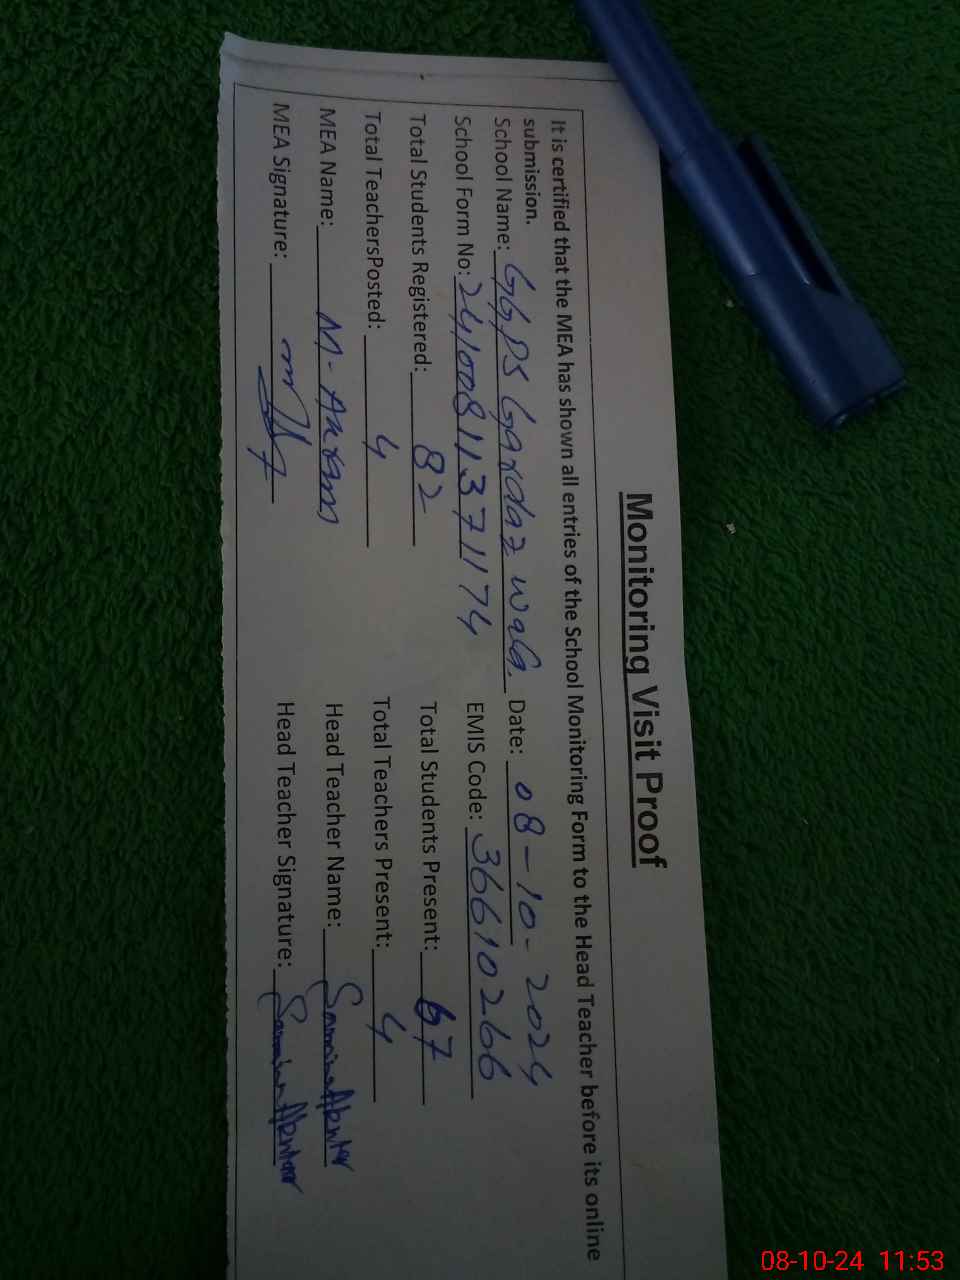 Monitoring Visit Proof
It is certified that the MEA has shown all entries of the School Monitoring Form to the Head Teacher before its online
submission.
School Name: GGPS Gardaz wala Date: 08-10-2024
School Form No: 24100811371174 EMIS Code: 36610266
Total Students Registered: 82 Total Students Present: 67
Total TeachersPosted: 4 Total Teachers Present: 4
MEA Name: M. Akram Head Teacher Name:
MEA Signature: Head Teacher Signature:
08-10-24 11:53